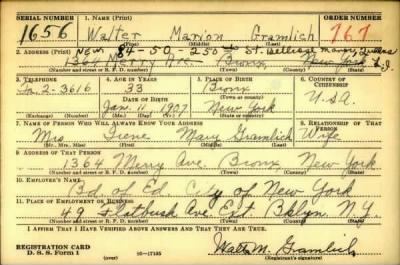 SERIAL NUMBER 1. NAME (Print) ORDER NUMBER
1656 Walter Marion Gramlich 767
(First) (Middle) (Last)
2. ADDRESS (Print) New 84-50-250 St. Bellerose Manor, Queens
1364 Merry Ave. Bronx New York L.I.
(Number and street or R. F. D. number) (Town) (County) (State)
3. TELEPHONE 4. AGE IN YEARS 5. PLACE OF BIRTH 6. COUNTRY OF CITIZENSHIP
2-3616 33 Bronx
DATE OF BIRTH (Town or county)
Jan. 11 1907 New York U.S.A.
(Exchange) (No.) (Mo.) (Day) (Yr.) (State or country)
7. NAME OF PERSON WHO WILL ALWAYS KNOW YOUR ADDRESS 8. RELATIONSHIP OF THAT PERSON
Mrs Irene Mary Gramlich Wife
(Mr., Mrs., Miss) (First) (Middle) (Last)
9. ADDRESS OF THAT PERSON
1364 Merry Ave. Bronx, New York
(Number and street or R. F. D. number) (Town) (County) (State)
10. EMPLOYER'S NAME
Bd of Ed City of New York
11. PLACE OF EMPLOYMENT OR BUSINESS
49 Flatbush Ave Ext. Bklyn. N.Y.
(Number and street or R. F. D. number) (Town) (County) (State)
I AFFIRM THAT I HAVE VERIFIED ABOVE ANSWERS AND THAT THEY ARE TRUE.
REGISTRATION CARD
D. S. S. Form 1 16-17105 Walter M. Gramlich
(Registrant's signature)